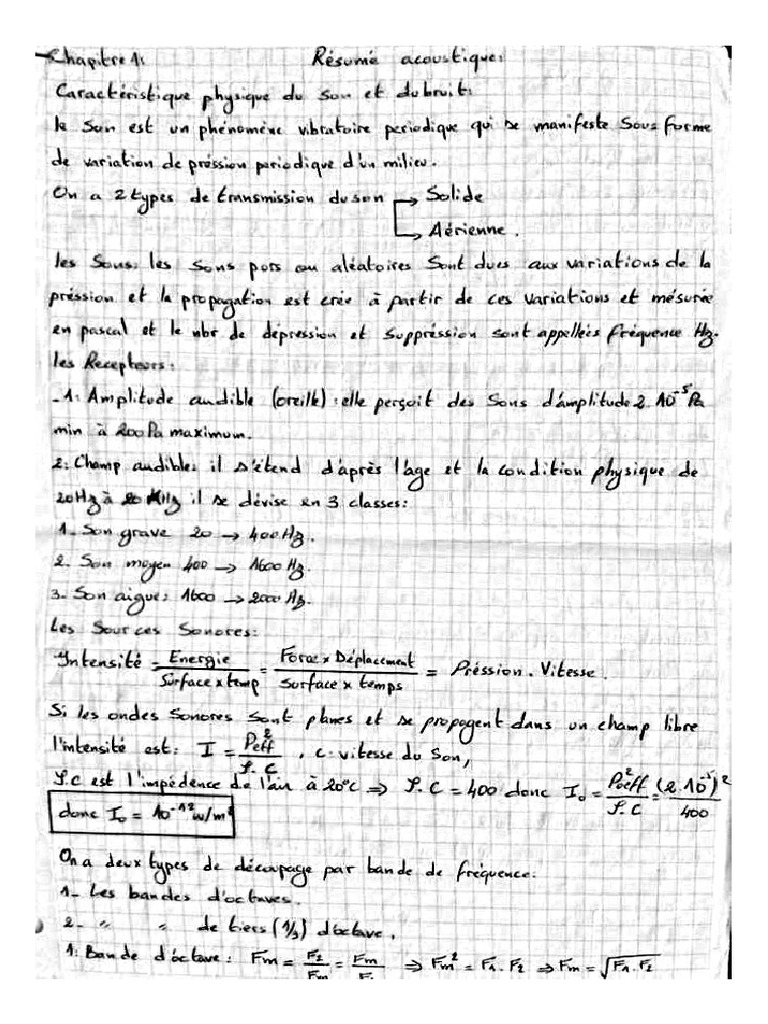 Chapitre 1: Résumé acoustique:
Caractéristique physique du son et du bruit:
le Son est un phénomène vibratoire periodique qui se manifeste Sous forme
de variation de préssion periodique d'un milieu.
On a 2 types de transmission du son → Solide
→ Aérienne.
les Sons: les Sons purs ou aléatoires Sont dues aux variations de la
préssion et la propagation est crée à partir de ces variations et mésurée
en pascal et le nbr de dépression et suppréssion sont appellées fréquence Hz.
les Recepteurs:
-1: Amplitude audible (oreille): elle perçoit des Sons d'amplitude 2.10⁻⁵ Pa
min à 200 Pa maximum.
2: Champ audible: il s'étend d'après l'age et la condition physique de
20Hz à 20 KHz il se dévise en 3 classes:
1- Son grave 20 → 400 Hz.
2. Son moyen 400 → 1600 Hz.
3- Son aigue: 1600 → 2000 Hz.
Les Sources Sonores:
Intensité = Energie / Surface x temp = Force x Déplacement / Surface x temps = Préssion . Vitesse.
Si les ondes Sonores sont planes et se propagent dans un champ libre
l'intensité est: I = Peff² / ρ.C . C: vitesse du Son,
ρ.C est l'impédence de l'air à 20°C ⇒ ρ.C = 400 donc I₀ = P₀eff² / ρ.C = (2.10⁻⁵)² / 400
donc I₀ = 10⁻¹² w/m²
On a deux types de découpage par bande de fréquence:
1- Les bandes d'octaves.
2- " " de tiers (1/3) d'octave.
1: Bande d'octave: Fm = F2 / Fm = Fm / F ⇒ Fm² = F1 . F2 ⇒ Fm = √F1 . F2